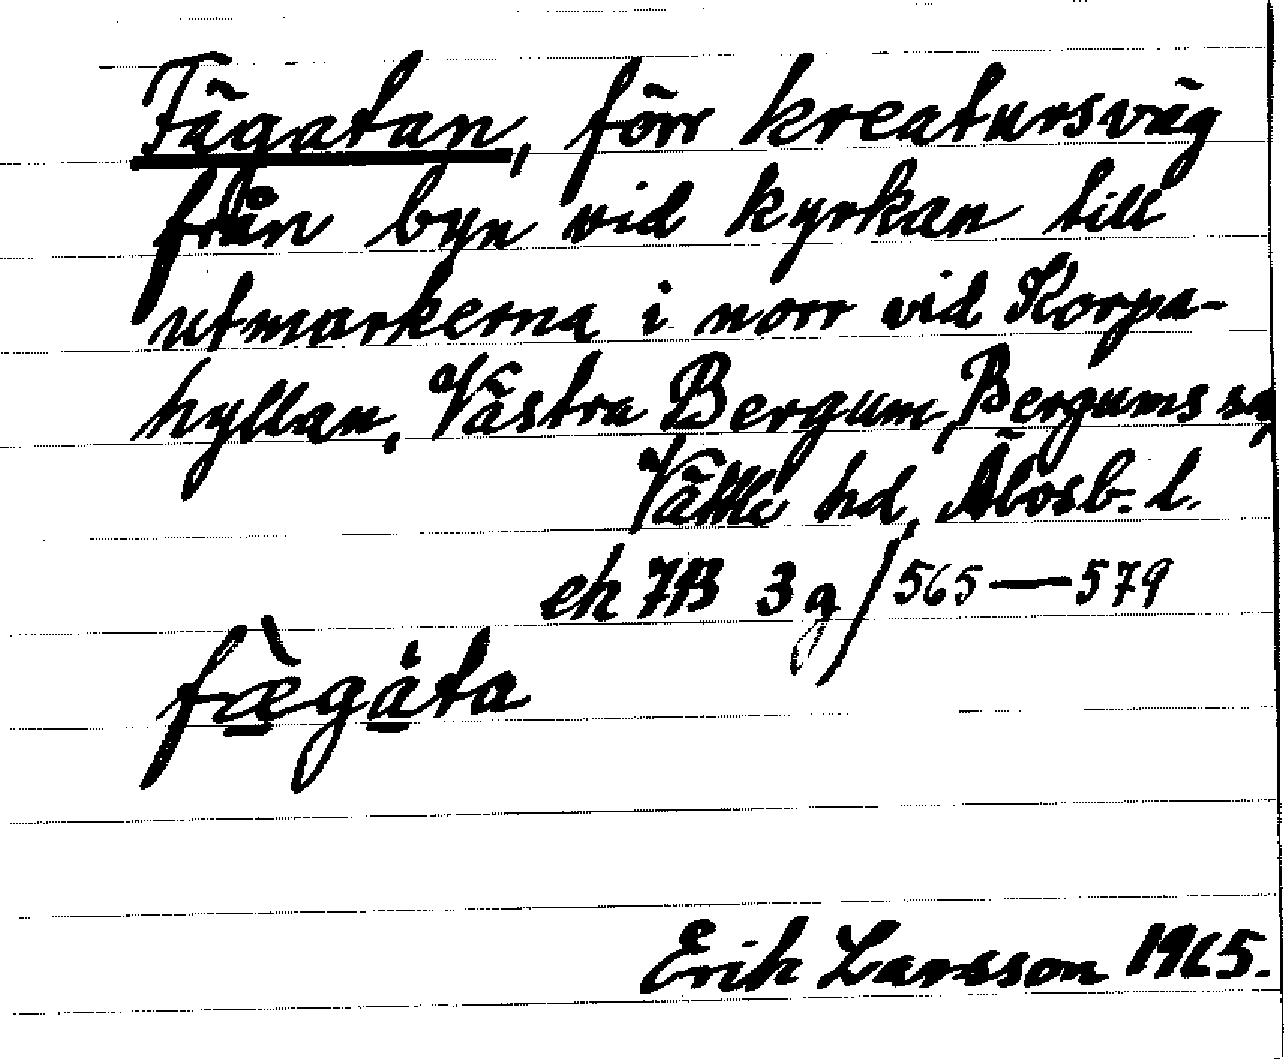 Fägatan, förr kreatursväg
från byn vid kyrkan till
utmarkerna i norr vid Korpa-
hyllan, Västra Bergum, Bergums sn,
Vättle hd, Älvsb. l.
ek 7B 3g/565—579
fæ̀gáta
Erik Larsson 1965.